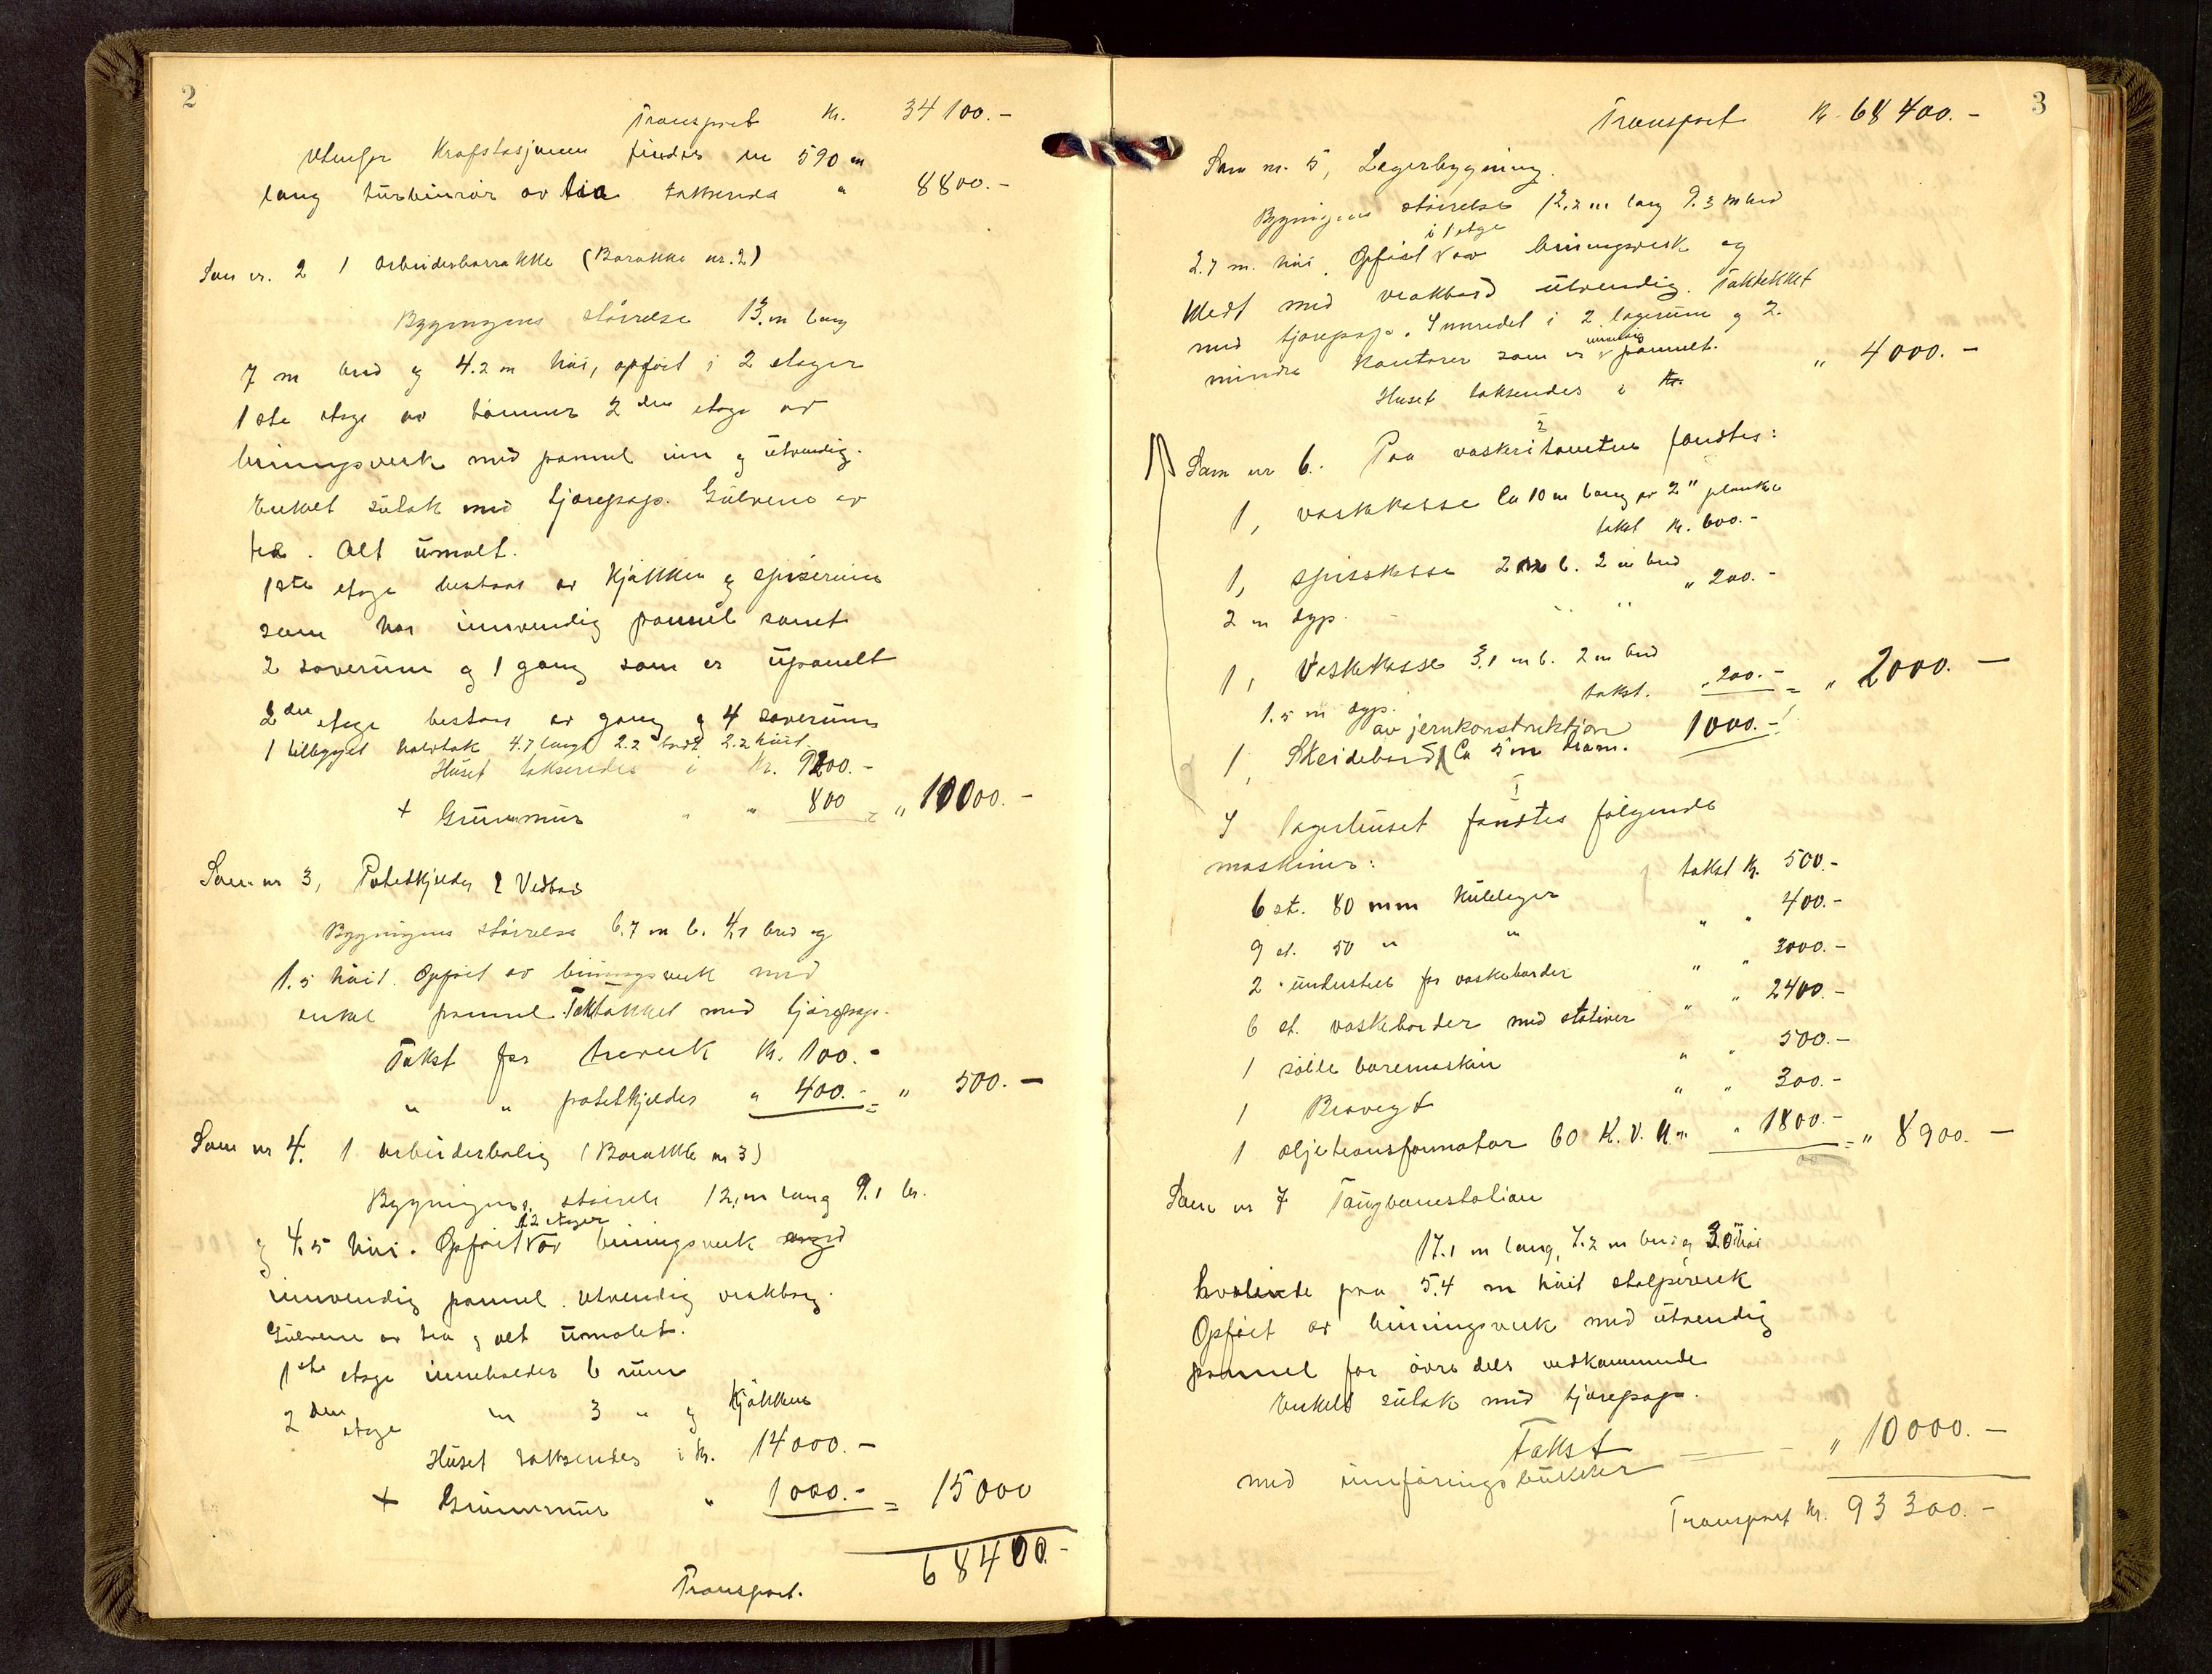 2
Transport Kr. 34100.-
Utenfor Krafstasjonen findes en 590 m
lang türbinrör av tra takseres " 8800.-
Som nr. 2 1 Arbeiderbarrakke (Barakke nr. 2)
Bygningens störrelse 13. m lang
7 m bred og 4.2 m höi, opfört i 2 etager
1ste etage av tömmer 2den etage av
bindingsverk med pannel inn og ütvendig.
Enkelt sütak med tjærepap. Gülvene av
tre. Alt ümalt.
1ste etage bestaar av Kjökken og spiserüm
som har innvendig pannel samt
2 soverüm og 1 gang som er üpanelt
2den etage bestaar av gang og 4 soverüm
1 tilbygget halvtak 4.7 langt 2.2 bredt 2.2 höit.
Hüset takseredes i Kr. 9200.-
+ Grünnmür " " 800 = " 10000.-
Som nr 3, Potetkjelder & Vedbod
Bygningens störrelse 6.7 m l. 4.1 bred og
1.5 höit. Opfört av bindingsverk med
enkel pannel. Taktækket med tjærepap.
Takst for treverk Kr. 100.-
" " potetkjelder " 400.- = " 500.-
Som nr 4. 1 arbeiderbolig (Barakke nr 3)
Bygningens störrelse 12. m lang 9.1 br.
i 2 etager
og 4.5 höi. Opfört av bindingsverk med
innvendig pannel. Utvendig vrakbord.
Gülvene av tre og alt ümalet.
1ste etage inneholder 6 rüm
2den etage " 3 " og Kjökken
Hüset takseredes i Kr. 14000.-
+ Grünnmür " 1000.- = 15000
68400.-
Transport.
3
Transport Kr 68400.-
Som nr. 5, Lagerbygning.
Bygningens störrelse 12.2 m lang 9.3 m bred
i 1 etge
2.7 m. höi. Opfört av bindingsverk og
Kledt med vrakbord ütvendig. Taktekket
med tjærepap. Innredet i 2 lagerüm og 2.
mindre Kontorer som er innvendig pannelt.
Huset takseredes i Kr. " 4000.-
Som nr 6. Paa vaskeritomten fandtes:
1, vaskekasse Ca 10 m lang av 2" planke
takst Kr. 600.-
1, spisskasse 2 m l. 2 m bred
2 m dyp. " " " 200.-
1, Vaskekasse 3.1 m l. 2 m bred
1.5 m dyp. takst. " 200.- = " 2000.-
av jernkonstruktion
1, Skeidebord Ca 5 m diam. 1000.-
I lagerhüset fandtes fölgende
maskiner:
6 st. 80 mm Külelager takst Kr. 500.-
9 st. 50 " " " " 400.-
2 " ünderstell for vaskeborder " " 3000.-
6 st. vaskeborder med stativer " " 2400.-
1 söile boremaskin " " 500.-
1 Brovegt " " 300.-
1 oljetransformator 60 K.V.A. " " 1800.- = " 8900.-
Som nr 7 Taugbanestation
17.1 m lang, 7.2 m bred og 3.0 m höi
hvilende paa 5.4 m höit stolpeverk
Opfört av bindingsverk med ütvendig
pannel for övre dels vedkommende
Enkelt sütak med tjærepap.
Takst " 10000.-
med innföringsbükker
Transport Kr. 93300.-